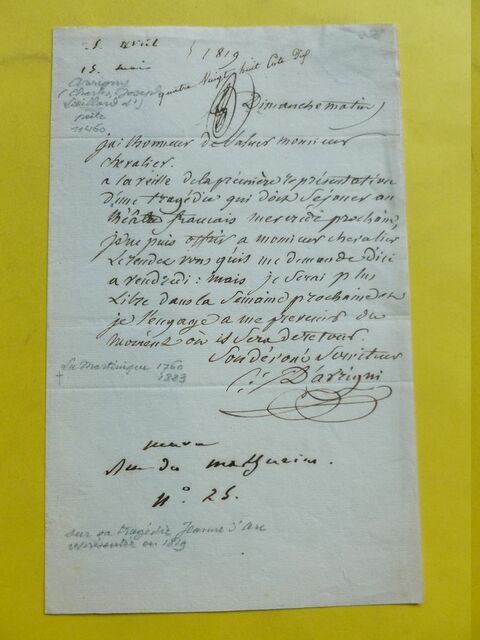 5 avril
1819
15. mai
quatre Vingt huit Cote dix
Davrigny
(Charles Joseph
Loeillard d')
poète
11460
Dimanche matin
j'ai l'honneur de saluer monsieur
chevalier.
a la veille de la première représentation
d'une tragédie qui doit se jouer au
théâtre français mercredi prochain,
je ne puis offrir a monsieur chevalier
le rendez vous qu'il me demande d'ici
a vendredi : mais je serai plus
libre dans la semaine prochaine et
je l'engage a me prévenir du
moment où il sera de retour.
Son dévoué serviteur
D'avrigni
La Martinique 1760
†
Rue des mathurins.
n.° 25.
sur sa tragédie Jeanne d'Arc
représentée en 1819